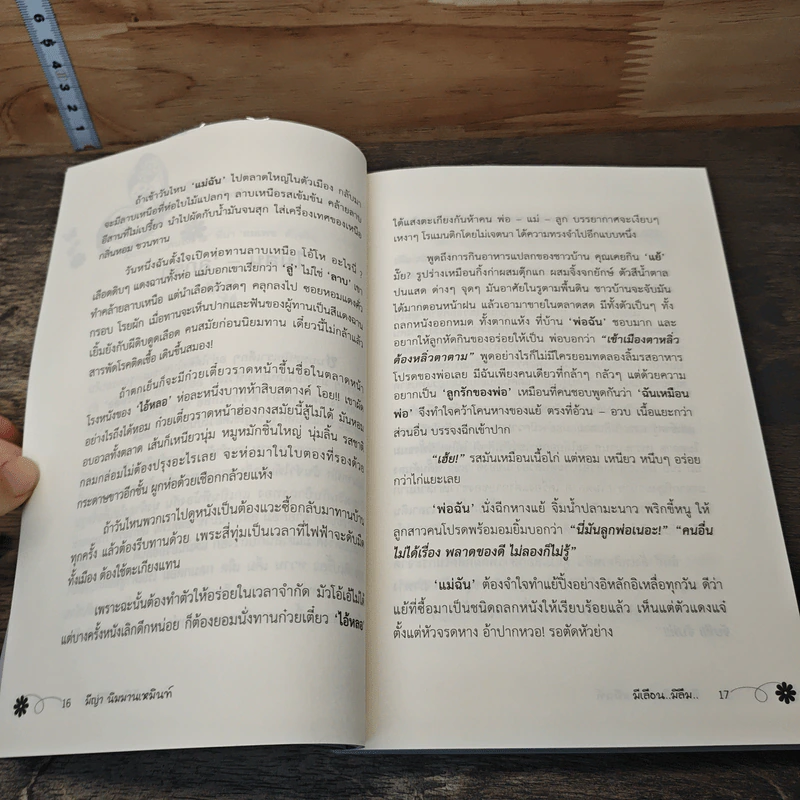 6
5
4
3
2
1
ถ้าเช้าวันไหน ‘แม่ฉัน’ ไปตลาดใหญ่ในตัวเมือง กลับมา
จะมีลาบเหนือที่ห่อใบไม้แปลกๆ ลาบเหนือรสเข้มข้น คล้ายลาบ
อีสานที่ไม่เปรี้ยว นำไปผัดกับน้ำมันจนสุก ใส่เครื่องเทศของเหนือ
กลิ่นหอม ชวนทาน
วันหนึ่งฉันตั้งใจเปิดห่อทานลาบเหนือ โอ้โห อะไรนี่ ?
เลือดดิบๆ แดงฉานทั้งห่อ แม่บอกเขาเรียกว่า ‘ลู่’ ไม่ใช่ ‘ลาบ’ เขา
ทำคล้ายลาบเหนือ แต่นำเลือดวัวสดๆ คลุกลงไป ซอยหอมแดงคั่ว
กรอบ โรยผัก เมื่อทานจะเห็นปากและฟันของผู้ทานเป็นสีแดงฉาน
เยิ้มยังกับผีดิบดูดเลือด คนสมัยก่อนนิยมทาน เดี๋ยวนี้ไม่กล้าแล้ว
สารพัดโรคติดเชื้อ เดินขึ้นสมอง!
ถ้าตกเย็นก็จะมีก๋วยเตี๋ยวราดหน้าขึ้นชื่อในตลาดหน้า
โรงหนังของ ‘ไอ้หลอ’ ห่อละหนึ่งบาทห้าสิบสตางค์ โอย!! เขาผัด
อย่างไรถึงได้หอม ก๋วยเตี๋ยวราดหน้าฮ่องกงสมัยนี้สู้ไม่ได้ มันหอม
อบอวลทั้งตลาด เส้นก็เหนียวนุ่ม หมูหมักชิ้นใหญ่ นุ่มลิ้น รสชาติ
กลมกล่อมไม่ต้องปรุงอะไรเลย จะห่อมาในใบตองที่รองด้วย
กระดาษขาวอีกชั้น ผูกห่อด้วยเชือกกล้วยแห้ง
ถ้าวันไหนพวกเราไปดูหนังเป็นต้องแวะซื้อกลับมาทานบ้าน
ทุกครั้ง แล้วต้องรีบทานด้วย เพราะสี่ทุ่มเป็นเวลาที่ไฟฟ้าจะดับมืด
ทั้งเมือง ต้องใช้ตะเกียงแทน
เพราะฉะนั้นต้องทำตัวให้อร่อยในเวลาจำกัด มัวโอ้เอ้ไม่ได้
แต่บางครั้งหนังเลิกดึกหน่อย ก็ต้องยอมนั่งทานก๋วยเตี๋ยว ‘ไอ้หลอ’
16 มีญ่า นิมมานเหมินท์
ใต้แสงตะเกียงกันห้าคน พ่อ – แม่ – ลูก บรรยากาศจะเงียบๆ
เหงาๆ โรแมนติกโดยไม่เจตนา ได้ความทรงจำไปอีกแบบหนึ่ง
พูดถึงการกินอาหารแปลกของชาวบ้าน คุณเคยกิน ‘แย้’
มั้ย? รูปร่างเหมือนกิ้งก่าผสมตุ๊กแก ผสมจิ้งจกยักษ์ ตัวสีน้ำตาล
ปนแสด ด่างๆ จุดๆ มันอาศัยในรูตามพื้นดิน ชาวบ้านจะจับมัน
ได้มากตอนหน้าฝน แล้วเอามาขายในตลาดสด มีทั้งตัวเป็นๆ ทั้ง
ถลกหนังออกหมด ทั้งตากแห้ง ที่บ้าน ‘พ่อฉัน’ ชอบมาก และ
อยากให้ลูกหัดกินของอร่อยให้เป็น พ่อบอกว่า “เข้าเมืองตาหลิ่ว
ต้องหลิ่วตาตาม” พูดอย่างไรก็ไม่มีใครยอมทดลองลิ้มรสอาหาร
โปรดของพ่อเลย มีฉันเพียงคนเดียวที่กล้าๆ กลัวๆ แต่ด้วยความ
อยากเป็น ‘ลูกรักของพ่อ’ เหมือนที่คนชอบพูดกันว่า ‘ฉันเหมือน
พ่อ’ จึงทำใจคว้าโคนหางของแย้ ตรงที่อ้วน – อวบ เนื้อแยะกว่า
ส่วนอื่น บรรจงฉีกเข้าปาก
“เฮ้ย!” รสมันเหมือนเนื้อไก่ แต่หอม เหนียว หนึบๆ อร่อย
กว่าไก่แยะเลย
‘พ่อฉัน’ นั่งฉีกหางแย้ จิ้มน้ำปลามะนาว พริกขี้หนู ให้
ลูกสาวคนโปรดพร้อมอมยิ้มบอกว่า “นี่มันลูกพ่อเนอะ!” “คนอื่น
ไม่ได้เรื่อง พลาดของดี ไม่ลองก็ไม่รู้”
‘แม่ฉัน’ ต้องจำใจทำแย้ปิ้งอย่างอิหลักอิเหลื่อทุกวัน ดีว่า
แย้ที่ซื้อมาเป็นชนิดถลกหนังให้เรียบร้อยแล้ว เห็นแต่ตัวแดงแจ๋
ตั้งแต่หัวจรดหาง อ้าปากหวอ! รอตัดหัวย่าง
มีเลือน..มิลืม.. 17